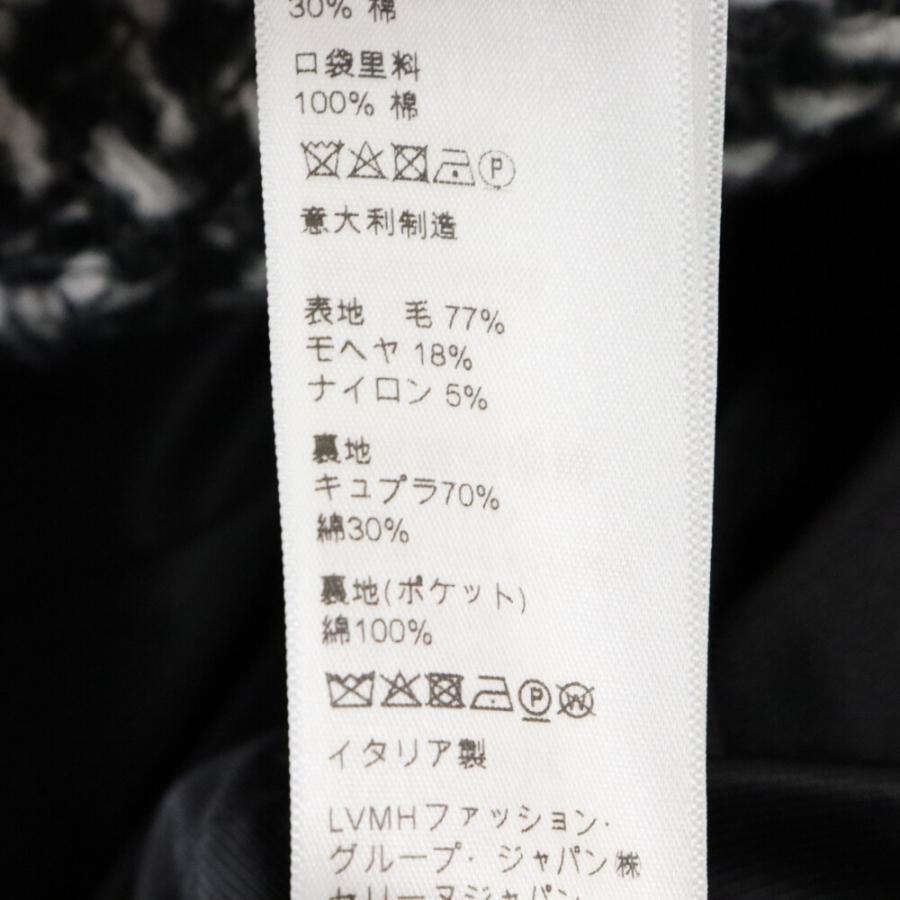 30% 棉
口袋里料
100% 棉
P
意大利制造
表地 毛 77%
モヘヤ 18%
ナイロン 5%
裏地
キュプラ70%
綿30%
裏地(ポケット)
綿100%
P W
イタリア製
LVMHファッション・
グループ・ジャパン㈱
セリーヌジャパン